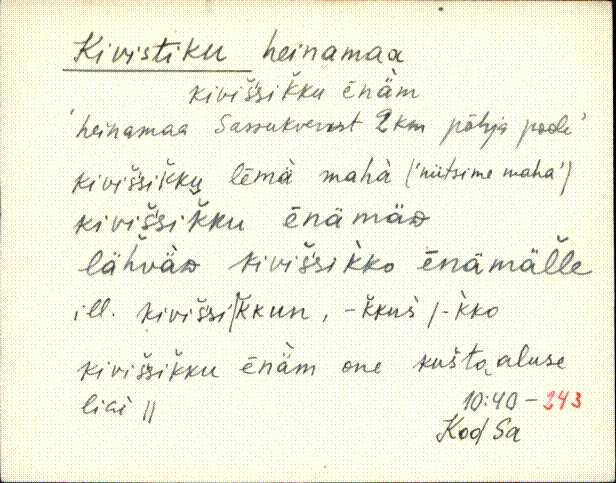 Kivistiku heinamaa
kivišsikku ēnäm
'heinamaa Sassukverest 2 km põhja pool'
kivišsikku lēmä mahà ('niitsime maha')
kivišsikku ēnämäᴅ
lähväᴅ kivišsikko ēnämälle
ill. kivišsi|kkun, -kkus̀ /-k̀ko
kivišsikku ēnäm one kušta aluse
liài //
10:40 - 243
Kod Sa